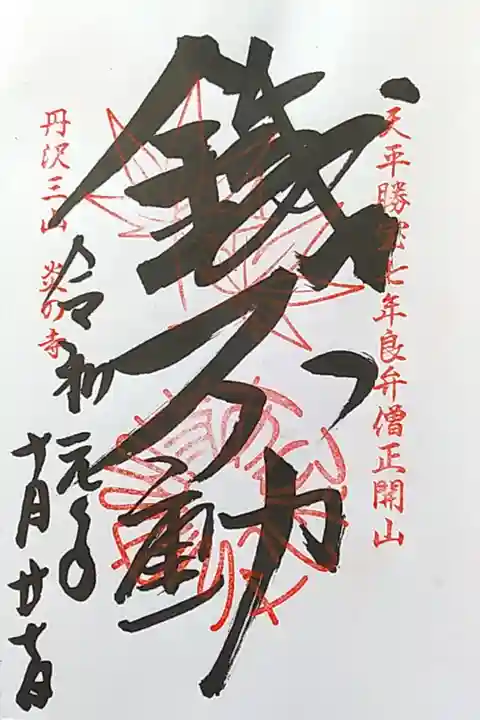 天平勝宝七年良弁僧正開山
鐵不動
丹沢三山 炎の寺
令和元年
十月廿七日